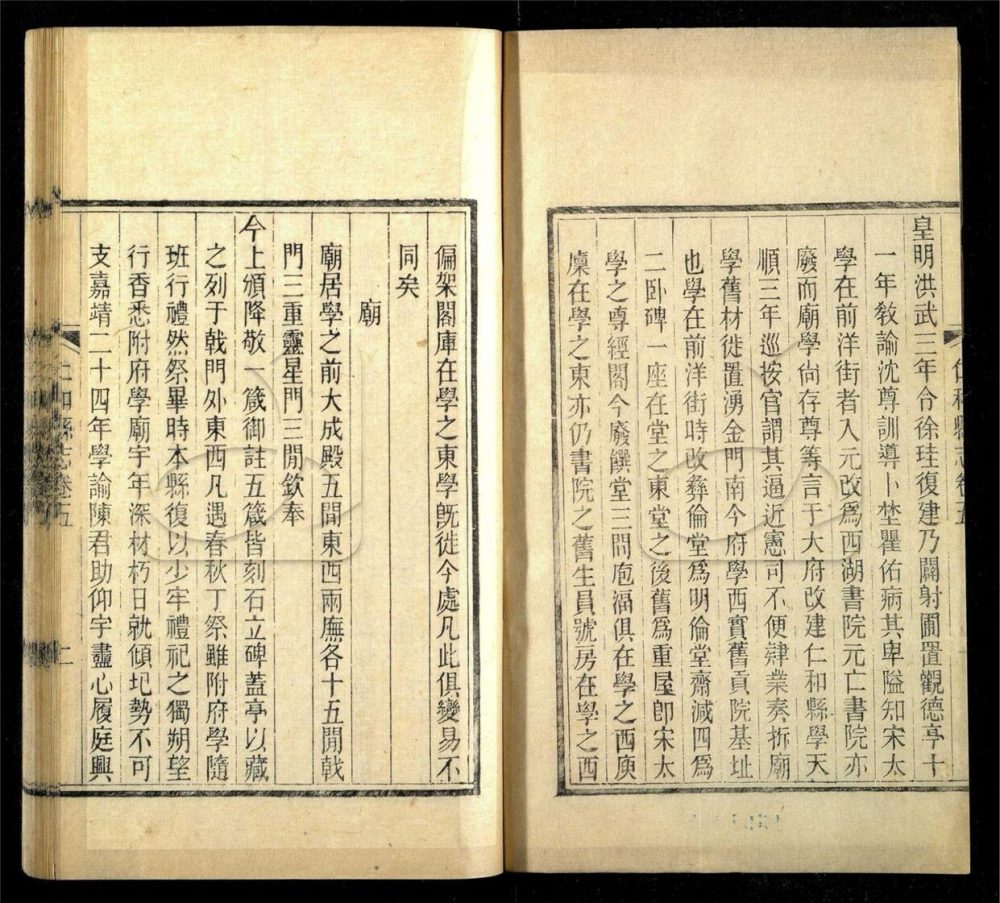 皇明洪武三年令徐珪復建乃闢射圃置觀德亭十
一年敎諭沈尊訓導卜埜瞿佑病其卑隘知宋太
學在前洋街者入元改爲西湖書院元亡書院亦
廢而廟學尙存尊等言于大府改建仁和縣學天
順三年巡按官謂其逼近憲司不便肄業奏拆廟
學舊材徙置湧金門南今府學西實舊貢院基址
也學在前洋街時改彝倫堂爲明倫堂齋減四爲
二卧碑一座在堂之東堂之後舊爲重屋卽宋太
學之尊經閣今廢饌堂三間庖湢俱在學之西庾
廩在學之東亦仍書院之舊生員號房在學之西
仁和縣志卷五
偏架閣庫在學之東學旣徙今處凡此俱變易不
同矣
廟
廟居學之前大成殿五間東西兩廡各十五間戟
門三重靈星門三間欽奉
今上頒降敬一箴御註五箴皆刻石立碑蓋亭以藏
之列于戟門外東西凡遇春秋丁祭雖附府學隨
班行禮然祭畢時本縣復以少牢禮祀之獨朔望
行香悉附府學廟宇年深材朽日就傾圮勢不可
支嘉靖二十四年學諭陳君助仰宇盡心履庭興
仁和縣志卷五